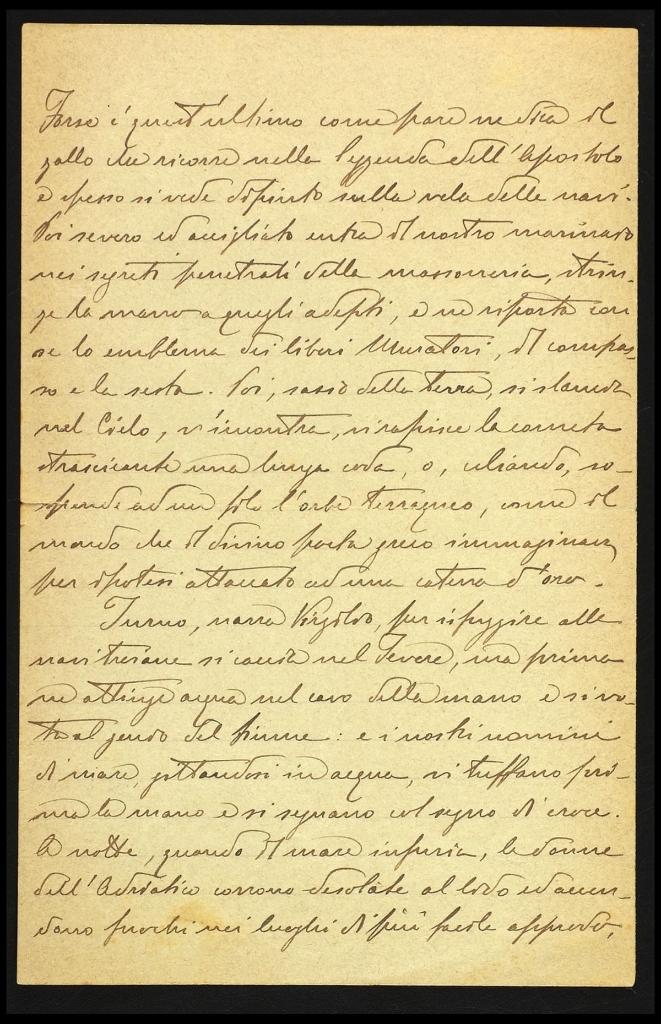 Forse è quest'ultimo come pare ne dica il
gallo che ricorre nella leggenda dell'Apostolo
e spesso si vede dipinto sulla vela delle navi.
Poi severo ed accigliato entra il nostro marinaio
nei segreti penetrali della massoneria, strin-
ge la mano a quegli adepti, e ne riporta con
se lo emblema dei liberi Muratori, il compas-
so e la sesta. Poi, sasso della terra, si slancia
nel Cielo, v'incontra, vi rapisce la cometa
strascicante una lunga coda, o, celiando, so-
spende ad un filo l'orbe terraqueo, come il
mondo che il divino poeta greco immaginava
per ipotesi attaccato ad una catena d'oro.
Turno, narra Virgilio, per isfuggire alle
navi troiane si caccia nel Tevere, ma prima
ne attinge acqua nel cavo della mano e si vo-
ta al genio del fiume: e i nostri uomini
di mare, gittandosi in acqua, vi tuffano pri-
ma la mano e si segnano col segno di croce.
A notte, quando il mare infuria, le donne
dell'Adriatico corrono desolate al lido ed accen-
dono fuochi nei luoghi di più facile approdo,